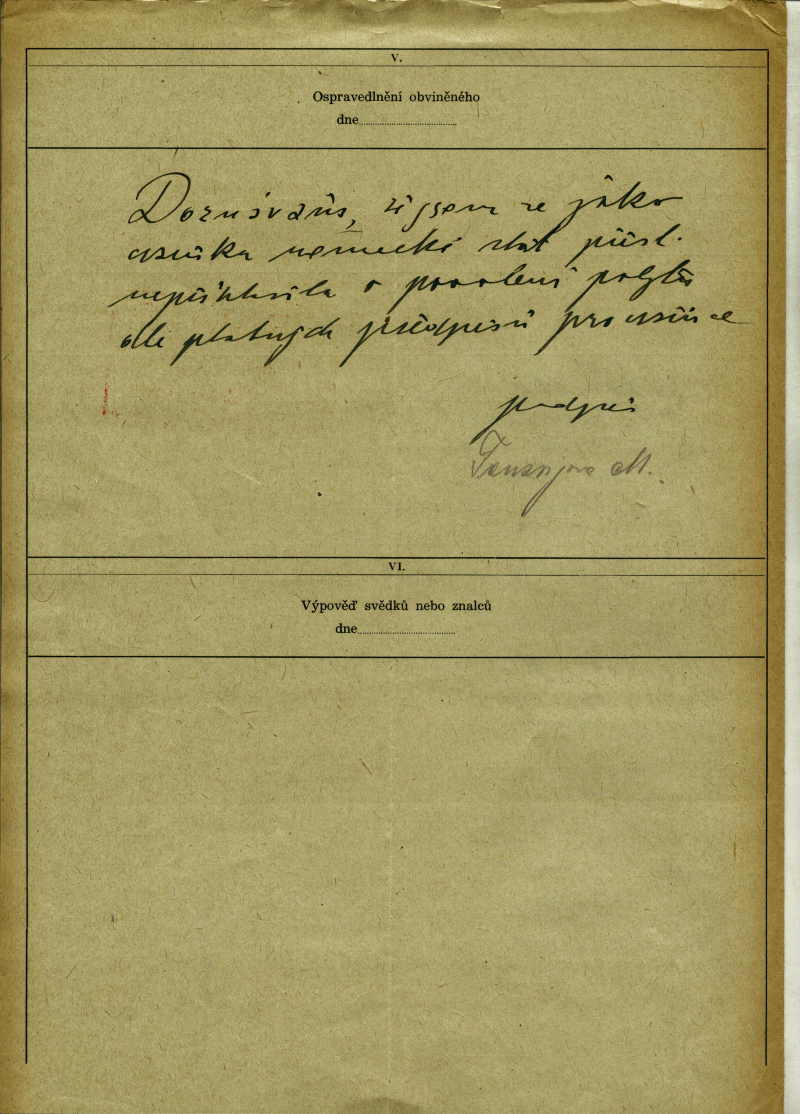 V.
Ospravedlnění obviněného
dne
Doznávám, že jsem se jako
cizinka německé stát. přísl.
nepřihlásila o povolení pobytu
dle platných předpisů pro cizince
podpis
M.
VI.
Výpověď svědků nebo znalců
dne